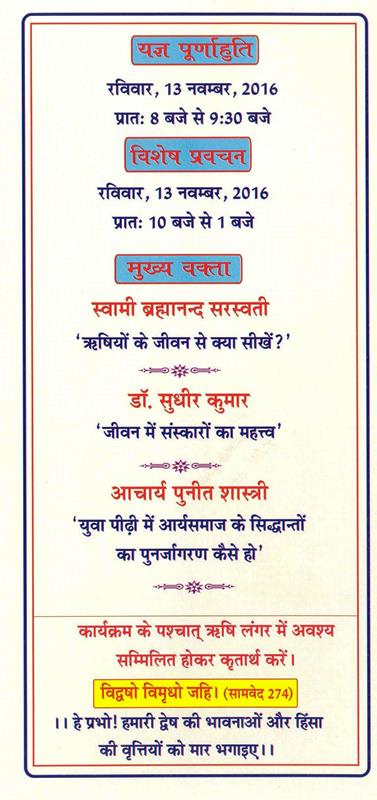 यज्ञ पूर्णाहुति
रविवार, 13 नवम्बर, 2016
प्रातः 8 बजे से 9:30 बजे
विशेष प्रवचन
रविवार, 13 नवम्बर, 2016
प्रातः 10 बजे से 1 बजे
मुख्य वक्ता
स्वामी ब्रह्मानन्द सरस्वती
‘ऋषियों के जीवन से क्या सीखें?’
डॉ. सुधीर कुमार
‘जीवन में संस्कारों का महत्त्व’
आचार्य पुनीत शास्त्री
‘युवा पीढ़ी में आर्यसमाज के सिद्धान्तों
का पुनर्जागरण कैसे हो’
कार्यक्रम के पश्चात् ऋषि लंगर में अवश्य
सम्मिलित होकर कृतार्थ करें।
विद्वषो विमृधो जहि। (सामवेद 274)
।। हे प्रभो! हमारी द्वेष की भावनाओं और हिंसा
की वृत्तियों को मार भगाइए।।